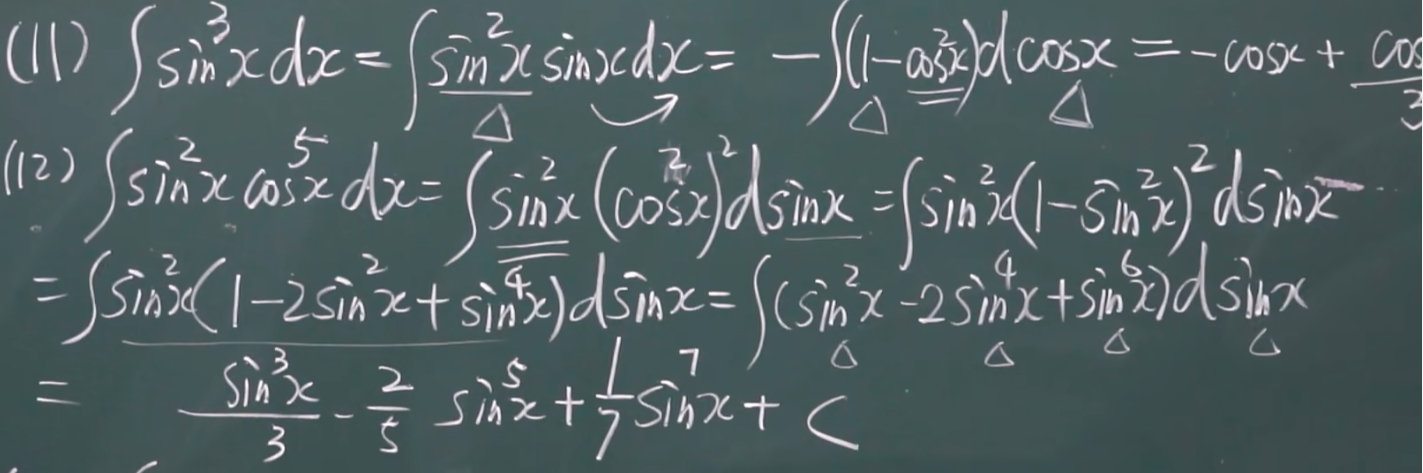 (11) ∫sin³x dx = ∫sin²x sinx dx = -∫(1-cos²x)d cosx = -cosx + cos/3
(12) ∫sin²x cos⁵x dx = ∫sin²x (cos²x)² d sinx = ∫sin²x(1-sin²x)² d sinx
= ∫sin²x(1-2sin²x+sin⁴x) d sinx = ∫(sin²x -2sin⁴x+sin⁶x) d sinx
= sin³x/3 - 2/5 sin⁵x + 1/7 sin⁷x + C